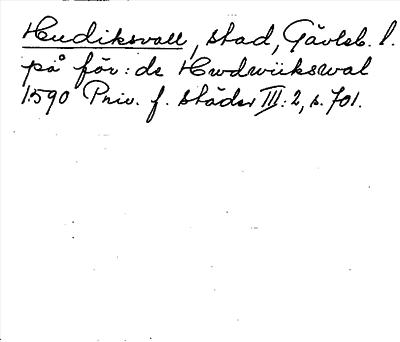 Hudiksvall, stad, Gävleb. l.
på för: de Hwdwiikswal
1590 Priv. f. städer III: 2, s. 701.